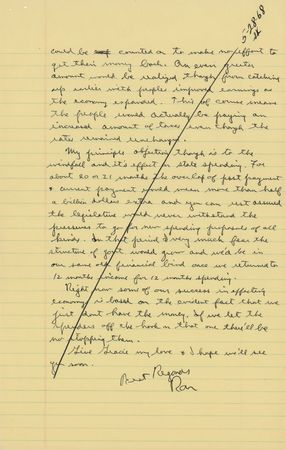 2-28-68
could be counted on to make no effort to
get their money back. An even greater
amount would be realized though from catching
up earlier with peoples improved earnings as
the economy expanded. This of course means
the people would actually be paying an
increased amount of taxes even though the
rates remained unchanged.
My principle objection though is to the
windfall and it's effect on state spending. For
about 20 or 21 months the overlap of past payment
& current payment would mean more than half
a billion dollars extra and you can rest assured
the legislature would never withstand the
pressures to go for new spending proposals of all
kinds. In that period I very much fear the
structure of govt. would grow and we'd be in
our same old financial bind once we returned to
12 months income for 12 months spending.
Right now some of our success in effecting
economy is based on the evident fact that we
just don't have the money. If we let the
spenders off the hook on that one there'll be
no stopping them.
Give Gracie my love & I hope we'll see
you soon.
Best Regards
Ron